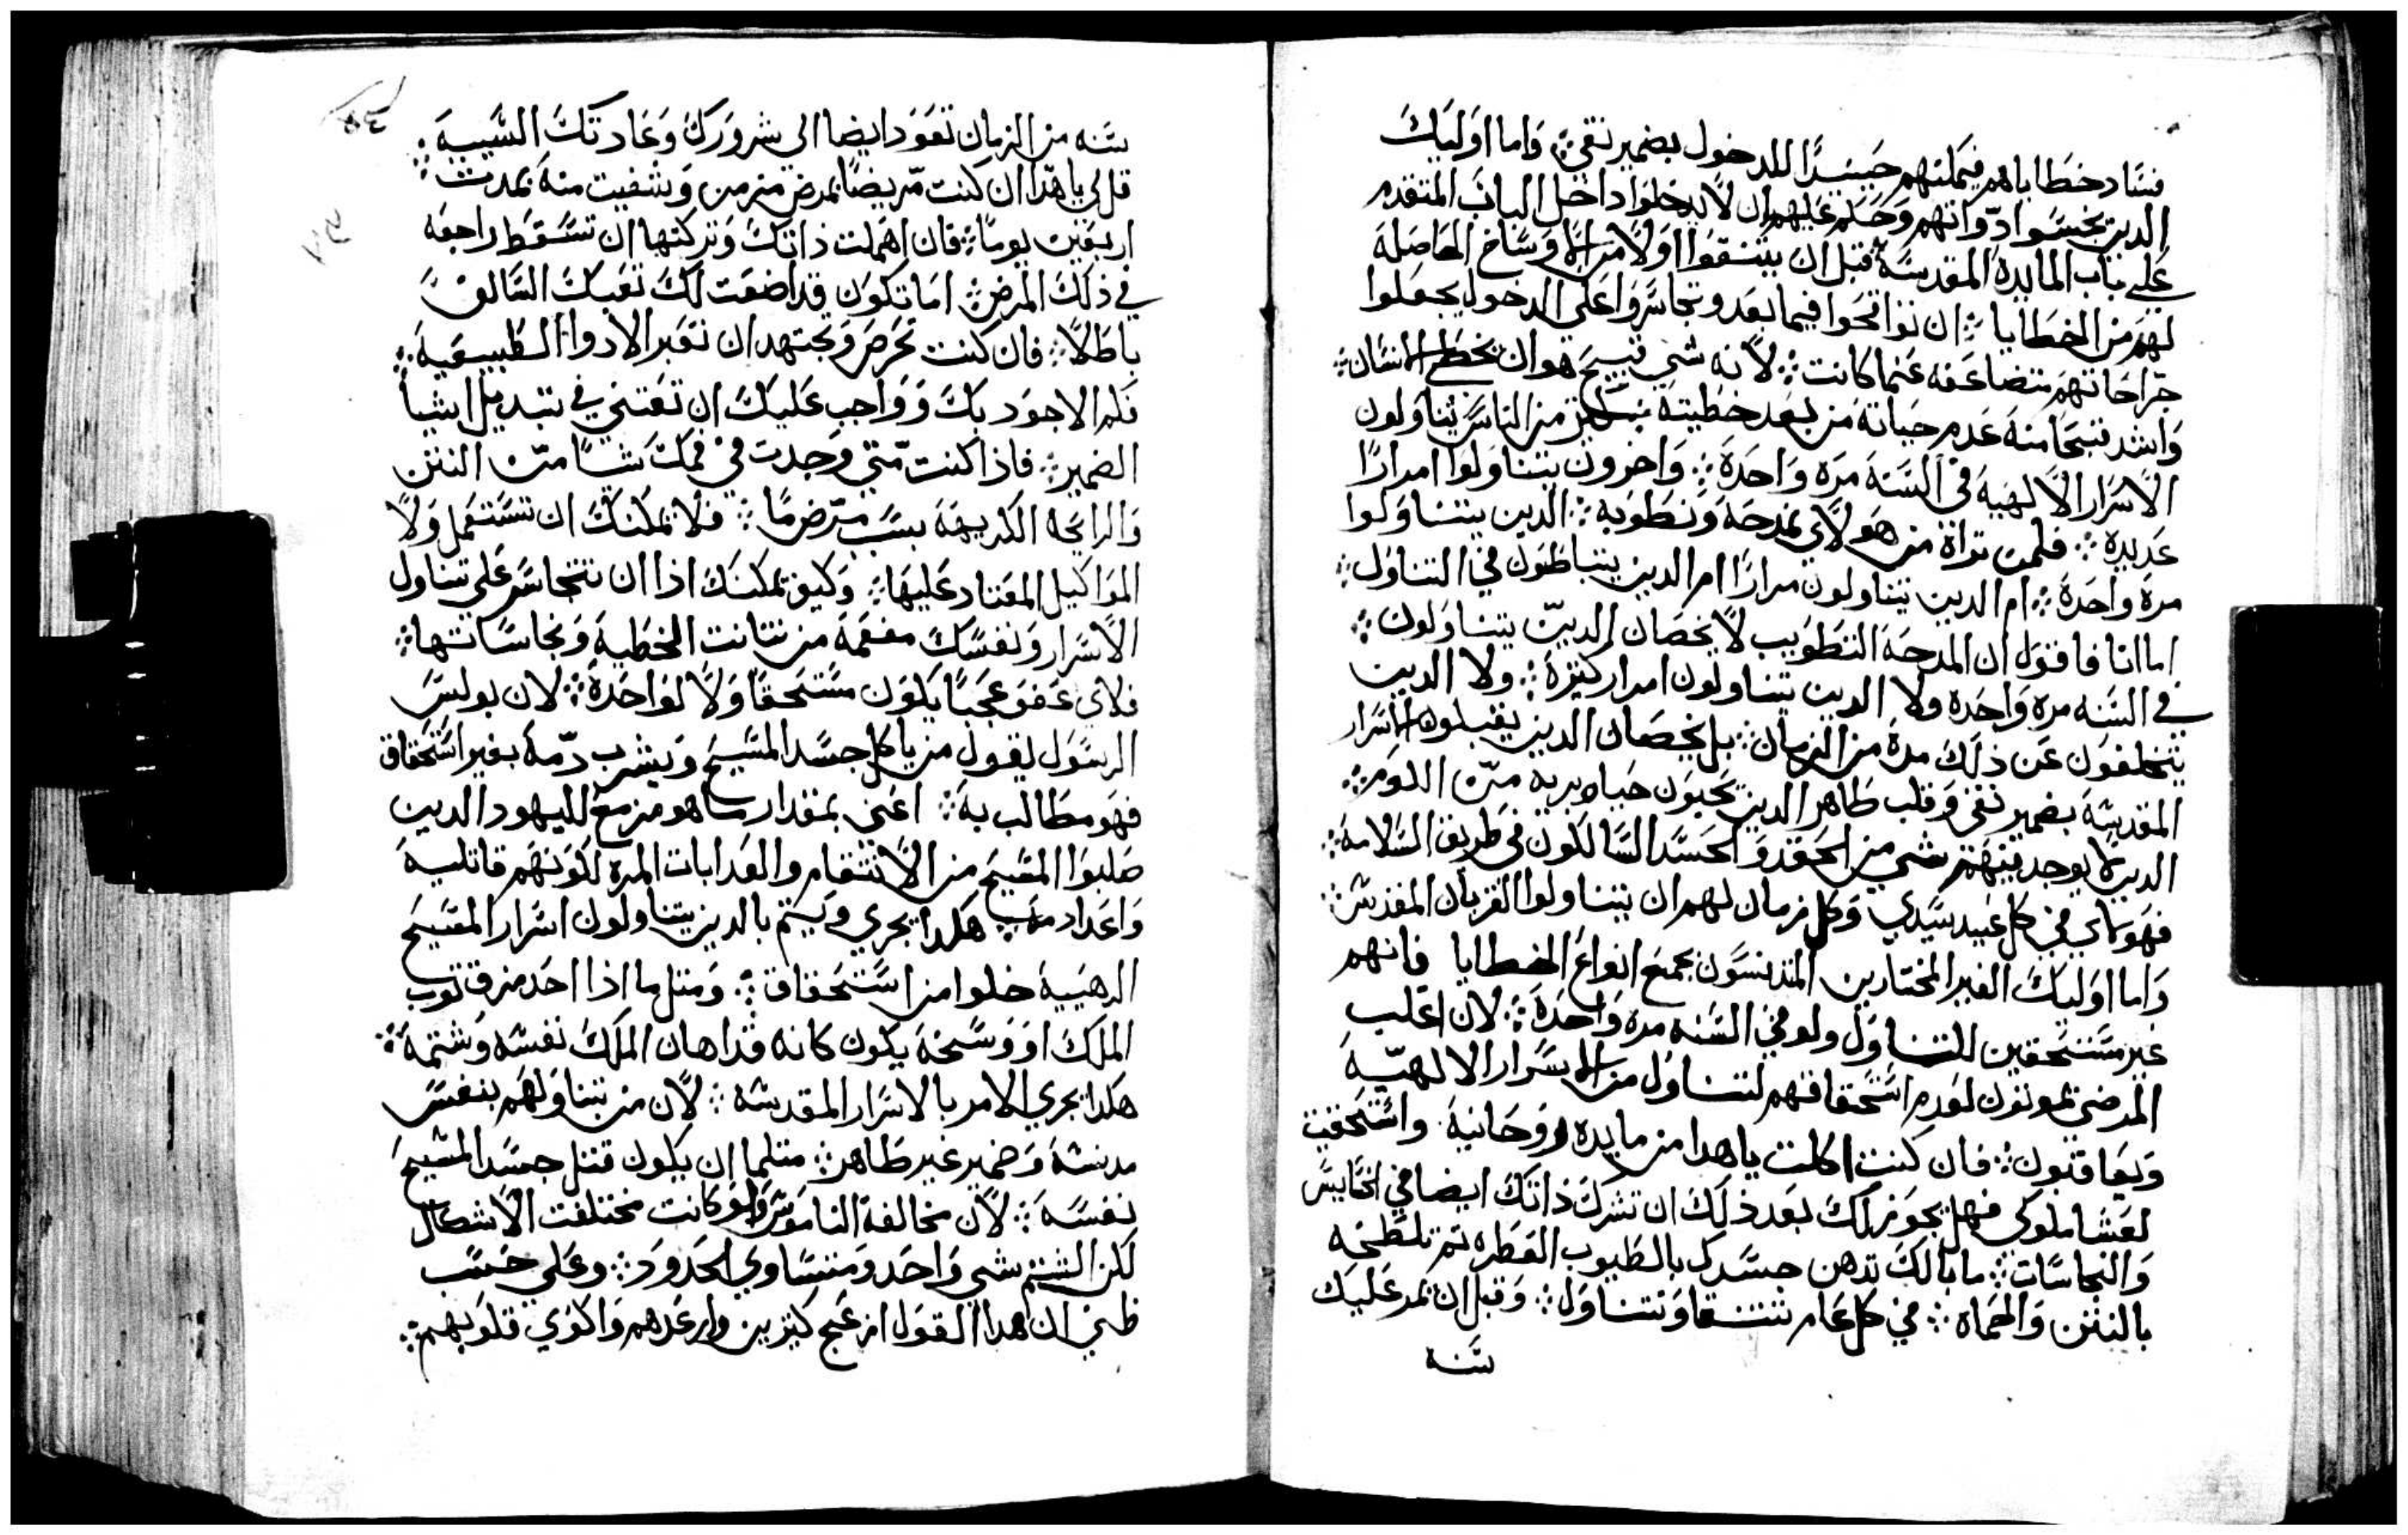 فساد خطاياهم فيمكنهم حينيدًا للدخول بضمير نقي܀ واما اوليك
الدين نجسوا دواتهم وحكم عليهم ان لا يدخلوا داخل الباب المتقدم
على باب المايدة المقدسة قبل ان يتنقوا اولًا من الاوساخ الحاصلة
لهم من الخطايا܀ ان تواقحوا فيما بعد وتجاسروا على الدخول يجعلوا
جراحاتهم متضاعفه عنما كانت܀ لانه شي قبيح هو ان يخطي الانسان܀
واشد قبحًا منه عدم حياته من بعد خطيته كثيرين من الناس يتناولون
الاسرار الالهية في السنة مرة واحدة܀ واخرون يتناولوا امرارًا
عديدة܀ فلمن تراة من هولاي نمدحه ونطوبه܀ الدين يتناولوا
مرة واحدة܀ ام الدين يتناولون مرارًا ام الدين يتباطون في التناول܀
اما انا فاقول ان المدحة التطويب لا يخصان الدين يتناولون܀
في السنه مرة واحدة ولا الدين يتناولون امرار كثيرة܀ ولا الدين
يتخلفون عن ذلك مدة من الزمان܀ بل يخصان الدين يقبلون الاسرار
المقدسة بضمير نقي وقلب طاهر الدين يحيون حياه بريه من اللوم܀
الدين لا يوجد فيهم شي من الحقد والحسد السالكون في طريق السلامة܀
فهولاي في كل عيد سيدي وكل زمان لهم ان يتناولوا القربان المقدس܀
واما اوليك الغير المختارين المتدنسون بجميع انواع الخطايا فانهم
غير مستحقين للتناول ولو في السنه مرة واحدة܀ لان اغلب
المرضى يموتون لعدم استحقاقهم لتناول من الاسرار الالهية
ويعاقبون܀ فان كنت اكلت ياهدا من مايده روحانية واستحقيت
لعشا ملوكي فهل يجوز لك بعد ذلك ان تشرك ذاتك ايضا في الخسايس
والنجاسات܀ ما بالك تدهن جسدك بالطيوب العطره تم تلطخه
بالنتن والحماه܀ في كل عام تتنقا وتتناول܀ وقبل ان تمر عليك
سنه
سنه من الزمان تعود ايضا الى شرورك وعادتك السيية܀
قل لي ياهدا ان كنت مريضًا بمرض مزمن وشفيت منه بمدت܀
اربعين يومًا܀ فان اهملت ذاتك وتركتها ان تسقط راجعه
في ذلك المرض܀ اما تكون قد اضعت لك تعبك السالف
باطلًا܀ فان كنت تحرص وتجتهد ان تغير الادوا الطبيعية܀
فلم الاجود بك وواجب عليك ان تعتني في تبديل اشيا
الضمير܀ فاذا كنت متي وجدت في فمك شيا من النتن
والرايحه الكريهة بسبب مرض ما܀ فلا يمكنك ان تستعمل ولا
المواكيل المعتاد عليها܀ وكيف يمكنك اذا ان تتجاسر على تناول
الاسرار ونفسك مفعمة من نتانت الخطية ونجاساتها܀
فلاي عفو عجبًا يكون مستحقًا ولا لواحدة܀ لان بولس
الرسول يقول من ياكل جسد المسيح ويشرب دمه بغير استحقاق
فهو مطالب به܀ اعني بمقدار ما هو مزمع لليهود الدين
صلبوا المسيح من الانتقام والعدابات المرة لكونهم قاتليه
واعداد هكدا يجري ويتم بالدين يتناولون اسرار المسيح
الرهيبة خلوا من استحقاق܀ ومتل ما اذا احد مزق توب
الملك او وسخه يكون كانه قد اهان الملك نفسه وشتمه܀
هكدا يجري الامر بالاسرار المقدسة܀ لان من يتناولهم بنفس
مدنسة وضمير غير طاهر܀ متلما ان يكون قتل جسد المسيح
نفسه܀ لان مخالفة الناموس ولو كانت مختلفت الاشكال
لكن الشتم شي واحد ومتساوي الحدود܀ وعلى حسب
ظني ان هدا القول ازعج كثيرين وارعدهم واكوي قلوبهم܀